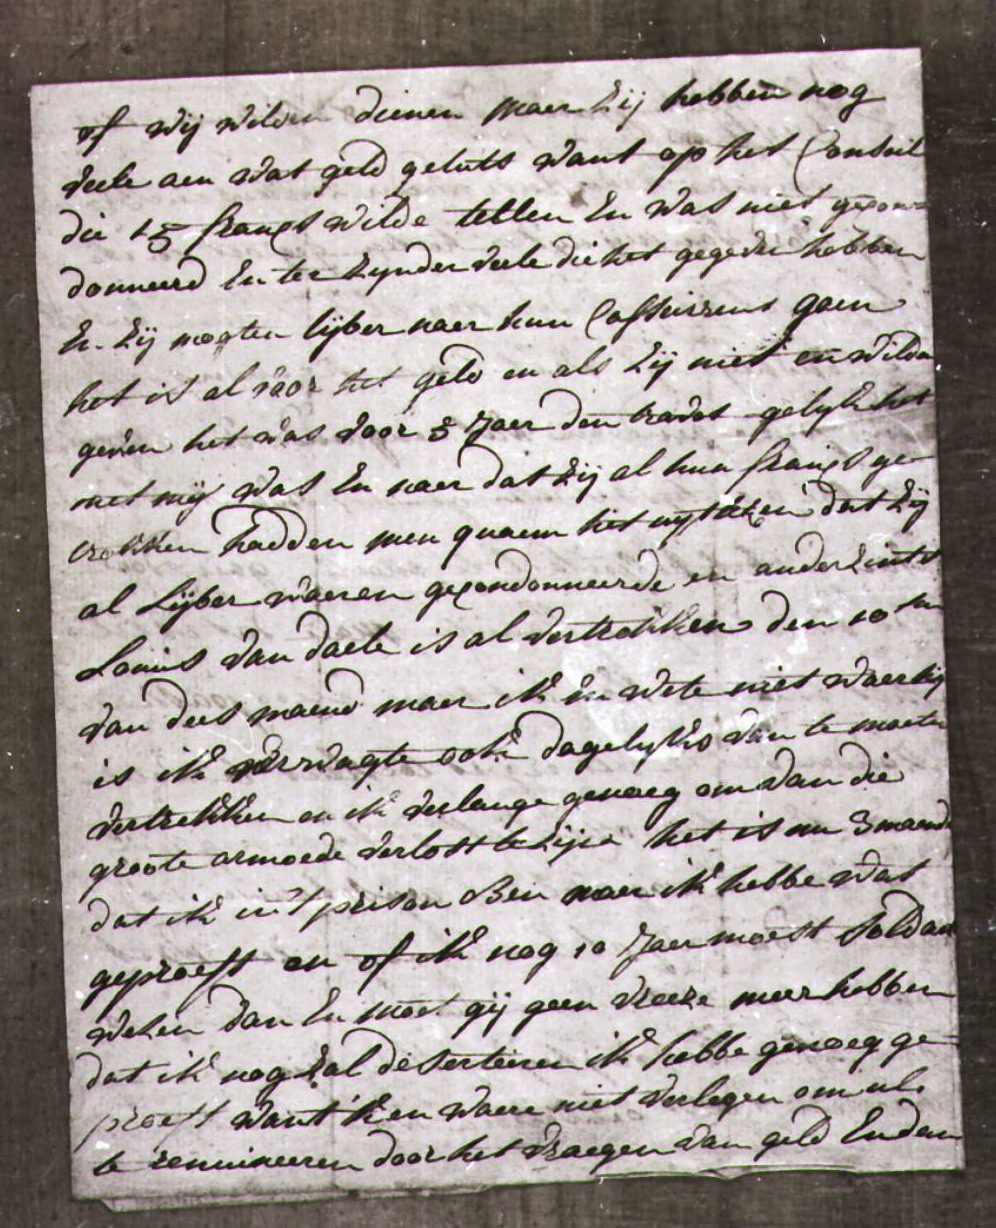 of wij wilden dienen maer zij hebben nog
veele aen wat geld geluts want op het Conseil
die 15 frangs wilde tellen En was niet gepon=
donneerd En ter zynder veele die het gegeven hebben
En zij mogten lijber naer hun Casseirzens gaen
het is al voor het geld en als zij niet en wilden
geven het was voor 5 Jaer den travos gelyk het
met mij was En naer dat zij al hun frangs ge=
trokken hadden men quaem het uytlezen dat zij
al lijber waeren gepondonneerde en anderzints
Louis van daele is al vertrokken den 10en
van dees maend maer ik En wete niet waer hij
is ik verwagte ook dagelyks van te moeten
vertrekken en ik verlange genoeg om van die
groote armoede verlost te zijn het is nu 3 maende
dat ik in 't prison Ben maer ik hebbe wat
geproeft en of ik nog 10 Jaer moest soldaet
wezen dan En moet gij geen vreeze meer hebben
dat ik nog zal deserteeren ik hebbe genoeg ge=
proeft want 'k en waere niet verlegen om ulo
te renuineeren door het vraegen van geld En dan